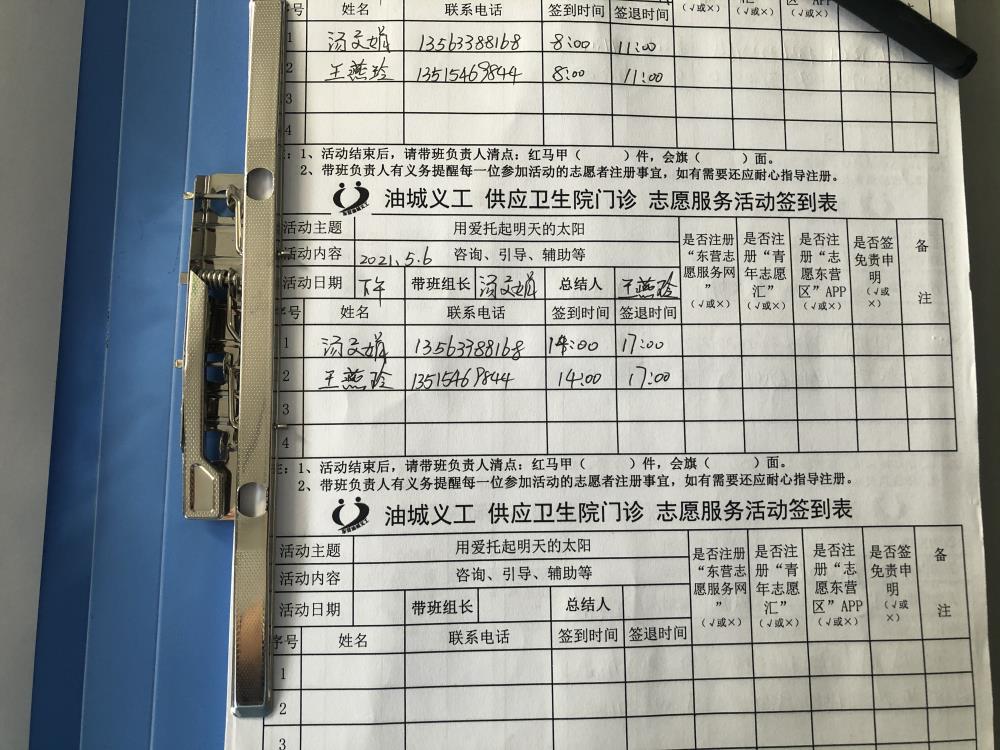 号 姓名 联系电话 签到时间 签退时间 （√或×） （√或×） （√或×）
1 汤文娟 13563388168 8:00 11:00
2 王燕玲 13515469844 8:00 11:00
3
4
注：1、活动结束后，请带班负责人清点：红马甲（ ）件，会旗（ ）面。
2、带班负责人有义务提醒每一位参加活动的志愿者注册事宜，如有需要还应耐心指导注册。
油城义工 供应卫生院门诊 志愿服务活动签到表
活动主题 用爱托起明天的太阳 是否注册“东营志愿服务网”（√或×） 是否注册“青年志愿汇”（√或×） 是否注册“志愿东营区”APP（√或×） 是否签免责申明（√或×） 备注
活动内容 咨询、引导、辅助等
活动日期 2021.5.6 下午 带班组长 汤文娟 总结人 王燕玲
序号 姓名 联系电话 签到时间 签退时间
1 汤文娟 13563388168 14:00 17:00
2 王燕玲 13515469844 14:00 17:00
3
4
注：1、活动结束后，请带班负责人清点：红马甲（ ）件，会旗（ ）面。
2、带班负责人有义务提醒每一位参加活动的志愿者注册事宜，如有需要还应耐心指导注册。
油城义工 供应卫生院门诊 志愿服务活动签到表
活动主题 用爱托起明天的太阳 是否注册“东营志愿服务网”（√或×） 是否注册“青年志愿汇”（√或×） 是否注册“志愿东营区”APP（√或×） 是否签免责申明（√或×） 备注
活动内容 咨询、引导、辅助等
活动日期 带班组长 总结人
序号 姓名 联系电话 签到时间 签退时间
1
2
3